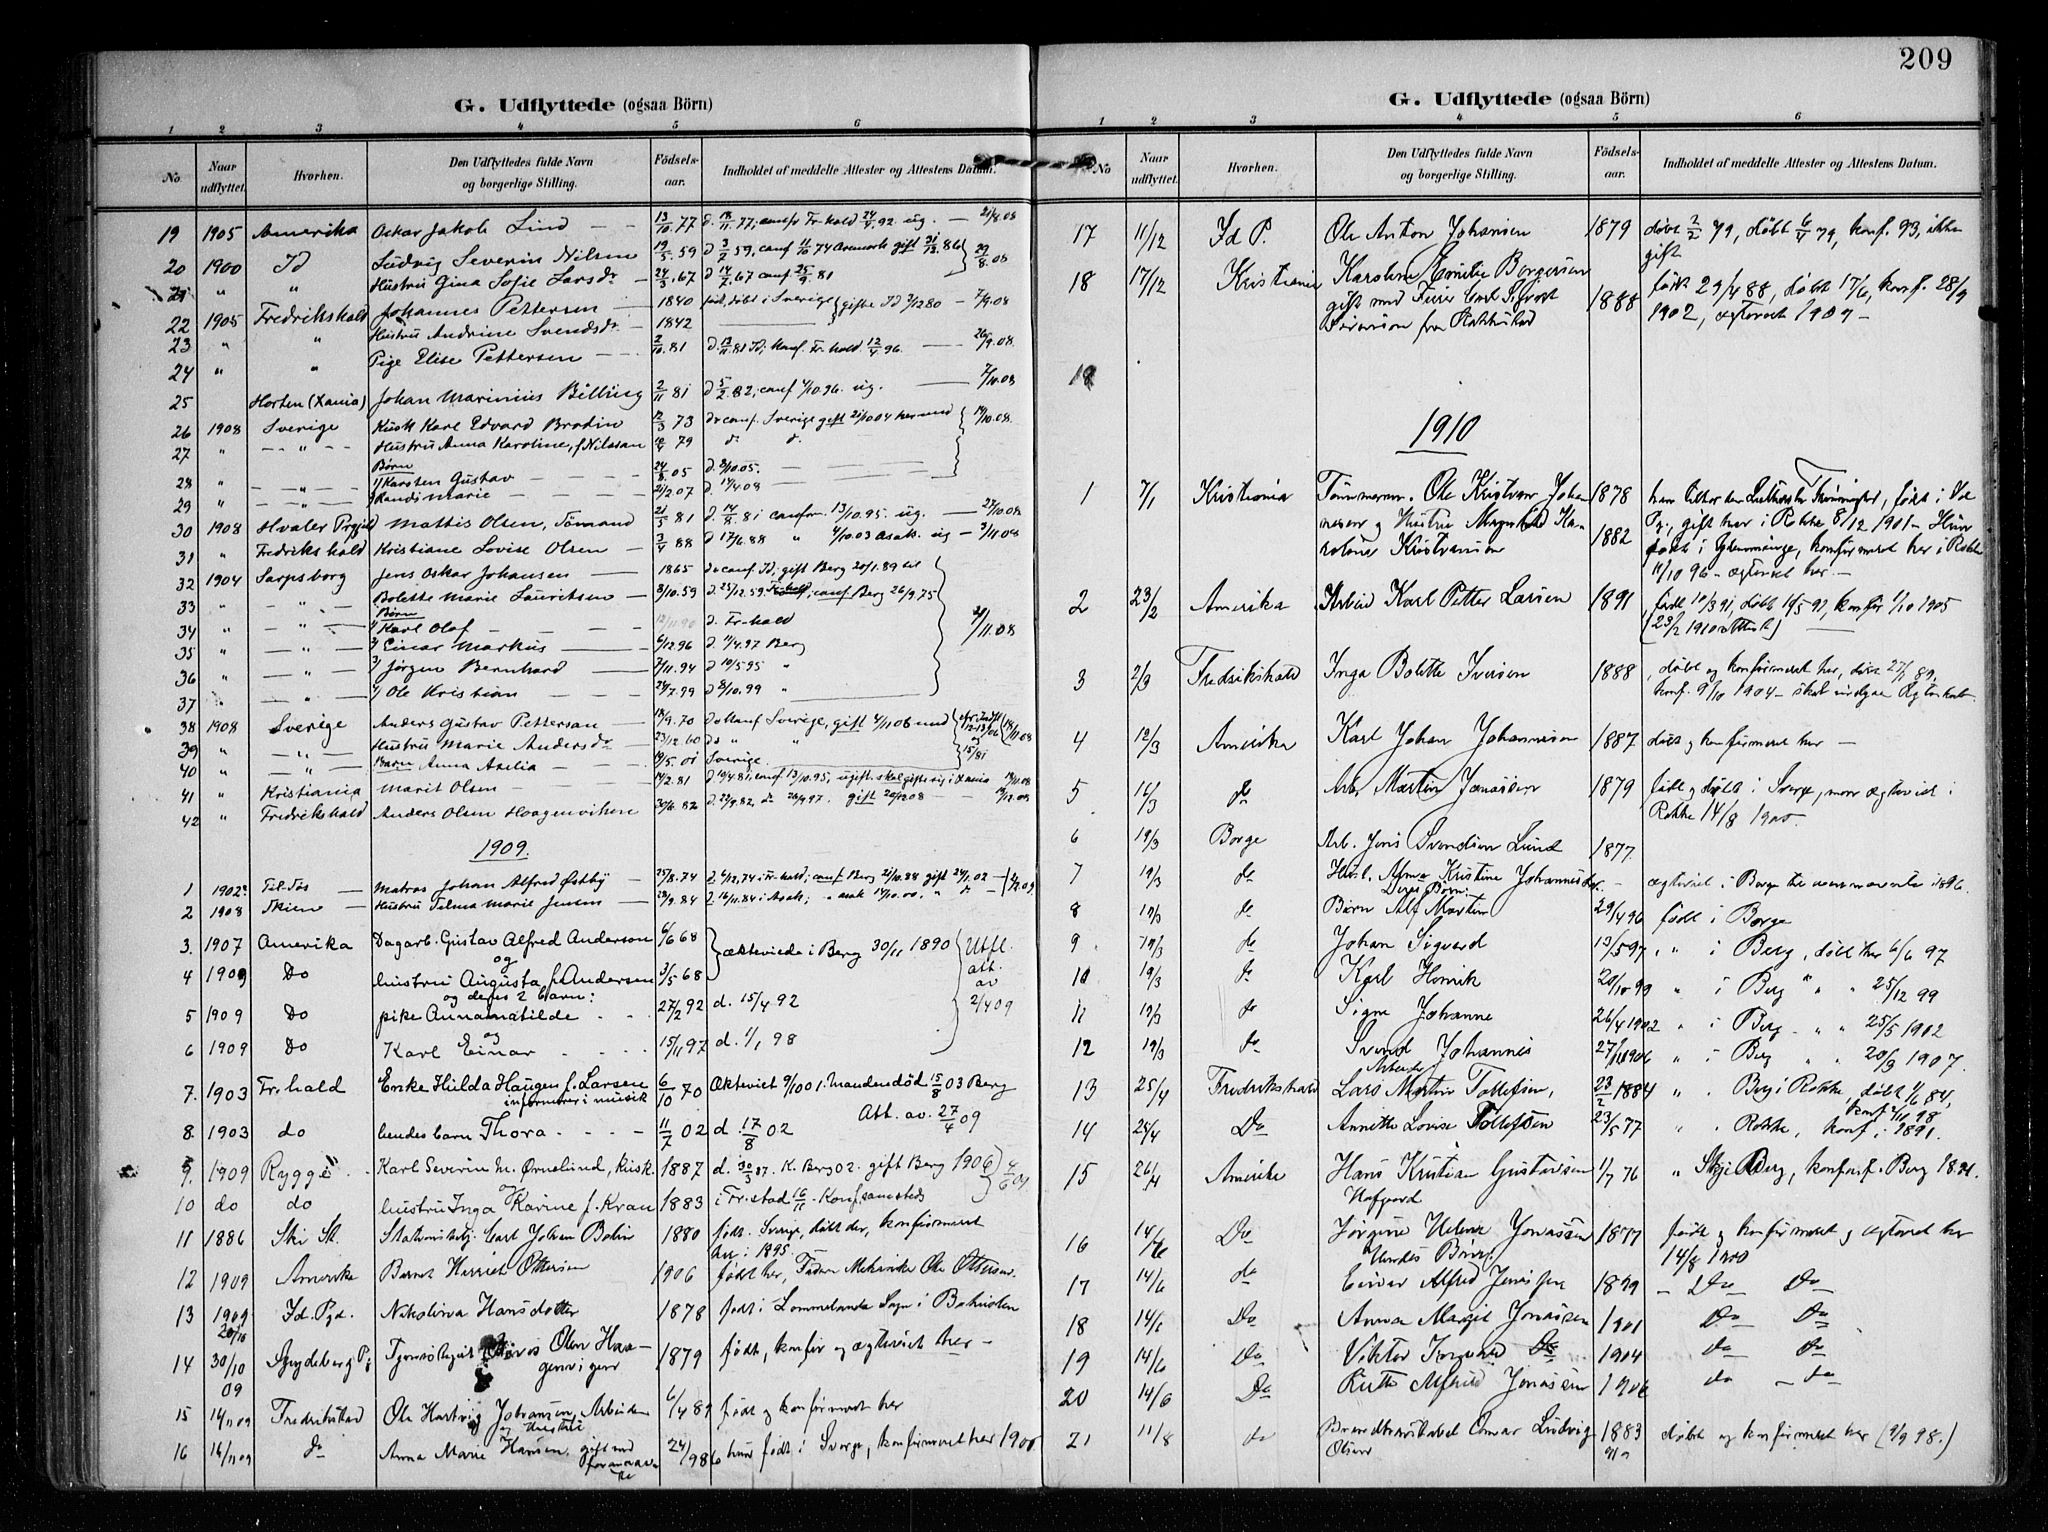 209
G. Udflyttede (ogsaa Börn)
1 2 3 4 5 6
No
Naar udflyttet.
Hvorhen.
Den Udflyttedes fulde Navn og borgerlige Stilling.
Fødsels-aar.
Indholdet af meddelte Attester og Attestens Datum.
19 1905 Amerika Oskar Jakob Lind 13/10 77 d. 18/11 77, conf. Fr.hald 24/4 92 ug. — 21/8.08
20 1900 Id Ludvig Severin Nilsen 19/5 59 d 3/2 59, conf 11/10 74 Aremark gift 31/12 86 29/8.08
21 " " Hustru Gina Sofie Larsdr 24/5 67 d 14/7 67 conf. 25/9 81
22 1905 Fredrikshald Johannes Pettersen 1840 fød, døbt i Sverige gifte Id 7/2 80 7/9.08
23 " " Hustru Andrine Svendsdr 1842
24 " " Pige Elise Pettersen 2/10 81 d. 13/11 81 Id, konf. Fr.hald 12/4 96. 26/9.08
25 Horten (Xania) Johan Marinius Billing 2/11 81 d 5/2 82, conf 4/10.96. ug. 7/10.08
26 1908 Sverige Kusk Karl Edvard Brodin 12/3 73 d conf. Sverige gift 21/10 04 her med 19/10.08.
27 " " Hustru Anna Karoline, f. Nilssan 79 d. d.
Børn
28 " " 1/ Karsten Gustav 24/8 05 d. 8/10.05.
29 " " 2/ Randi Marie 21/2.07 d. 17/4 08
30 1908 Hvaler Prgjld Mattis Olsen, Tømmand 21/5 81 d. 14/8 81 confirm. 13/10.95. ug. 27/10.08
31 " Fredrikshald Kristiane Lovise Olsen 3/4 88 d 17/6.88 " 4/10.03 Asak. ug — 3/11.08
32 1904 Sarpsborg Jens Oskar Johansen 1865 d conf. Id, gift Berg 20/1.89 til
33 " " Bolette Marie Lauritsen 8/10.59 d. 25/12.59 Fr.hald, conf Berg 26/9.75
Børn
34 " " 1/ Karl Olaf 12/11.90 d. Fr-hald 2/11.08
35 " " 2/ Einar Markus 6/12.96 d 11/4.97 Berg
36 " " 3/ Jørgen Bernhard 7/11.94 d 19/5 95 "
37 " " 4/ Ole Kristian 24/7.99 d 8/10.99 "
38 1908 Sverige Anders Gustav Petterson 18/9.70 d konf Sverige, gift 4/11 06 med
39 " " Hustru Marie Andersdr 23/12.60
40 " " Barn Anna Axelia 19/5.01 Sverige
41 " Kristiania Marit Olsen 14/2.81 d 19/4 81, conf 13/10.95, ugift. skal gifte sig i Xania 18/11.08
42 " Fredrikshald Anders Olsen Hoagenviken 30/6.82 d. 22/9.82, do 26/9 97. gift 20/12 08
1909.
1 1902 Matros Johan Alfred Østby 25/8.74 d 6/12.74 i Fr.hald; conf Berg 21/10.88 gift 24/1.02
2 1908 Skien Hustru Telma Marie Jensen 29/9.84 d. 16/11.84 i Asak; " Asak 14/10.00.
3. 1907 Amerika Dagarb. Gustav Alfred Anderson 6/6 68 ækteviede i Berg 30/11 1890 Utfl.
og
4 1909 Do hustru Augusta f. Andersen 3/5 68 att. av 2/4 09
og deres 2 barn:
5 1909 Do pike Anna Matilde 27/2 92 d. 15/4 92
og
6 1909 Do Karl Einar 15/11 97 d. 1/1 98
7. 1903 Fr.hald Enke Hulda Haugen f. Larsen 6/10 70 Ækteviet 9/10 01. Manden død 15/8 03 Berg
informerer i musik Att. av. 27/4 09
8. 1903 do hendes barn Thora 11/7 02 d. 17/8 02
9. 1909 Rygge Karl Severin M. Ørnelund, kusk. 1887 d. 30/3 87. K. Berg 02. gift Berg 1906 4/6 09
10 do do hustru Inga Karine f. Kran 1883 i Fr.stad 16/11. Konf. samesteds
11 1886 Ski St. Stationsbetj. Carl Johan Bolin 1880 født Sverige, døbt der, konfirmeret
her i 1895.
12 1909 Amerika Barnet Harriet Ottersen 1906 født her, Fader Mekaniker Ole Ottersen.
13 1909 Id. Pgd. Nikoliva Hansdotter 1878 født i Lommelanda Sogn i Bohuslen
20/10
14 30/10 09 Spydeberg Pg Olsen Haa- 1879 født, konfir og ægteviet her —
15 14/11 09 Fredrikstad Ole Hartvig Johansen, Arbeider 6/4 87 født og konfirmeret her
og Hustru
16 14/11 09 do Anna Marie Hansen, gift med foranværende 24/9 86 hun født i Sverge, konfirmeret her 1900
G. Udflyttede (ogsaa Börn)
1 2 3 4 5 6
No
Naar udflyttet.
Hvorhen.
Den Udflyttedes fulde Navn og borgerlige Stilling.
Fødsels-aar.
Indholdet af meddelte Attester og Attestens Datum.
17 11/12 Id P. Ole Anton Johansen 1879 født 2/2 79, døbt 6/4 79, konf. 93, ikke
gift
18 17/12 Kristiania Karoline Emilie Borgersen 1888 født 29/4 88, døbt 17/6, konf. 28/9
gift med
Iversen fra Rokkestad 1902, ægteviet 1909 —
19
1910
1 7/1 Kristiania Tømmerm. Ole Kristian Johan- 1878
nesen og Hustru Magnhild Ka- gift her i Rokke 8/12 1901 — Hun
roline Kristiansen 1882 født i konfirmeret her i Rokke
11/10 96 — ægteviet her. —
2 23/2 Amerika Arbeid Karl Petter Larsen 1891 født 10/3 91, døbt 18/5 91, konfir 1/10 1905
(23/2 1910
3 2/3 Fredrikshald Inga Bolette Iversen 1888 døbt og konfirmeret her, døbt 27/1 89,
konf. 9/10 1904 — skal indgaa Ægteskab
4 12/3 Amerika Karl Johan Johannesen 1887 døbt og konfirmeret her —
5 16/3 do Arb. Martin Jonassen 1879 født og døbt i Sverge, men ægteviet i
Rokke 14/8 1900.
6 19/3 Borge Arb. Jens Svendsen Lund 1877.
7 19/3 do Hust. Anna Kristine Johannesdr — ægteviet i Borge til 1896.
Deres Børn:
8 19/3 do Børn Alf Martin 29/4 96 født i Borge
9 19/3 do Johan Sigvard 13/5 97 " i Berg, døbt her 6/6 97
10 19/3 do Karl Henrik 20/10 99 " i Berg " " 25/12 99
11 19/3 do Signe Johanne 26/4 1902 " i Berg " " 25/5 1902
12 19/3 do Svend Johannes 27/11 1906 " i Berg " " 20/3 1907.
Arbeider
13 25/4 Fredrikshald Lars Martin Tollefsen, 23/2 1884 " Berg i Rokke, døbt 1/6 84,
konf 2/10 98
14 25/4 Do Annette Lovise Tollefsen 23/5 77 " Rokke, konf i 1891.
15 26/4 Amerika Hans Kristian Gustavsen 1/7 76 " Skjeberg, konf. i Berg 1891.
16 14/6 Do Jørgine Helene Jonassen 1877 født og konfirmeret og ægteviet her
Hendes Børn: 14/8 1900
17 14/6 do Einar Alfred Jonassen 1899 — Do Do
18 14/6 Do Anna Margit Jonassen 1901 Do Do
19 14/6 Do Viktor Ingvald Do 1904 do do
20 14/6 Do Ruth Alfhild Jonassen 1906 do — do
21 11/8 do Ludvig 1883 døbt og konfirmeret her (2/9 98.)
Olsen